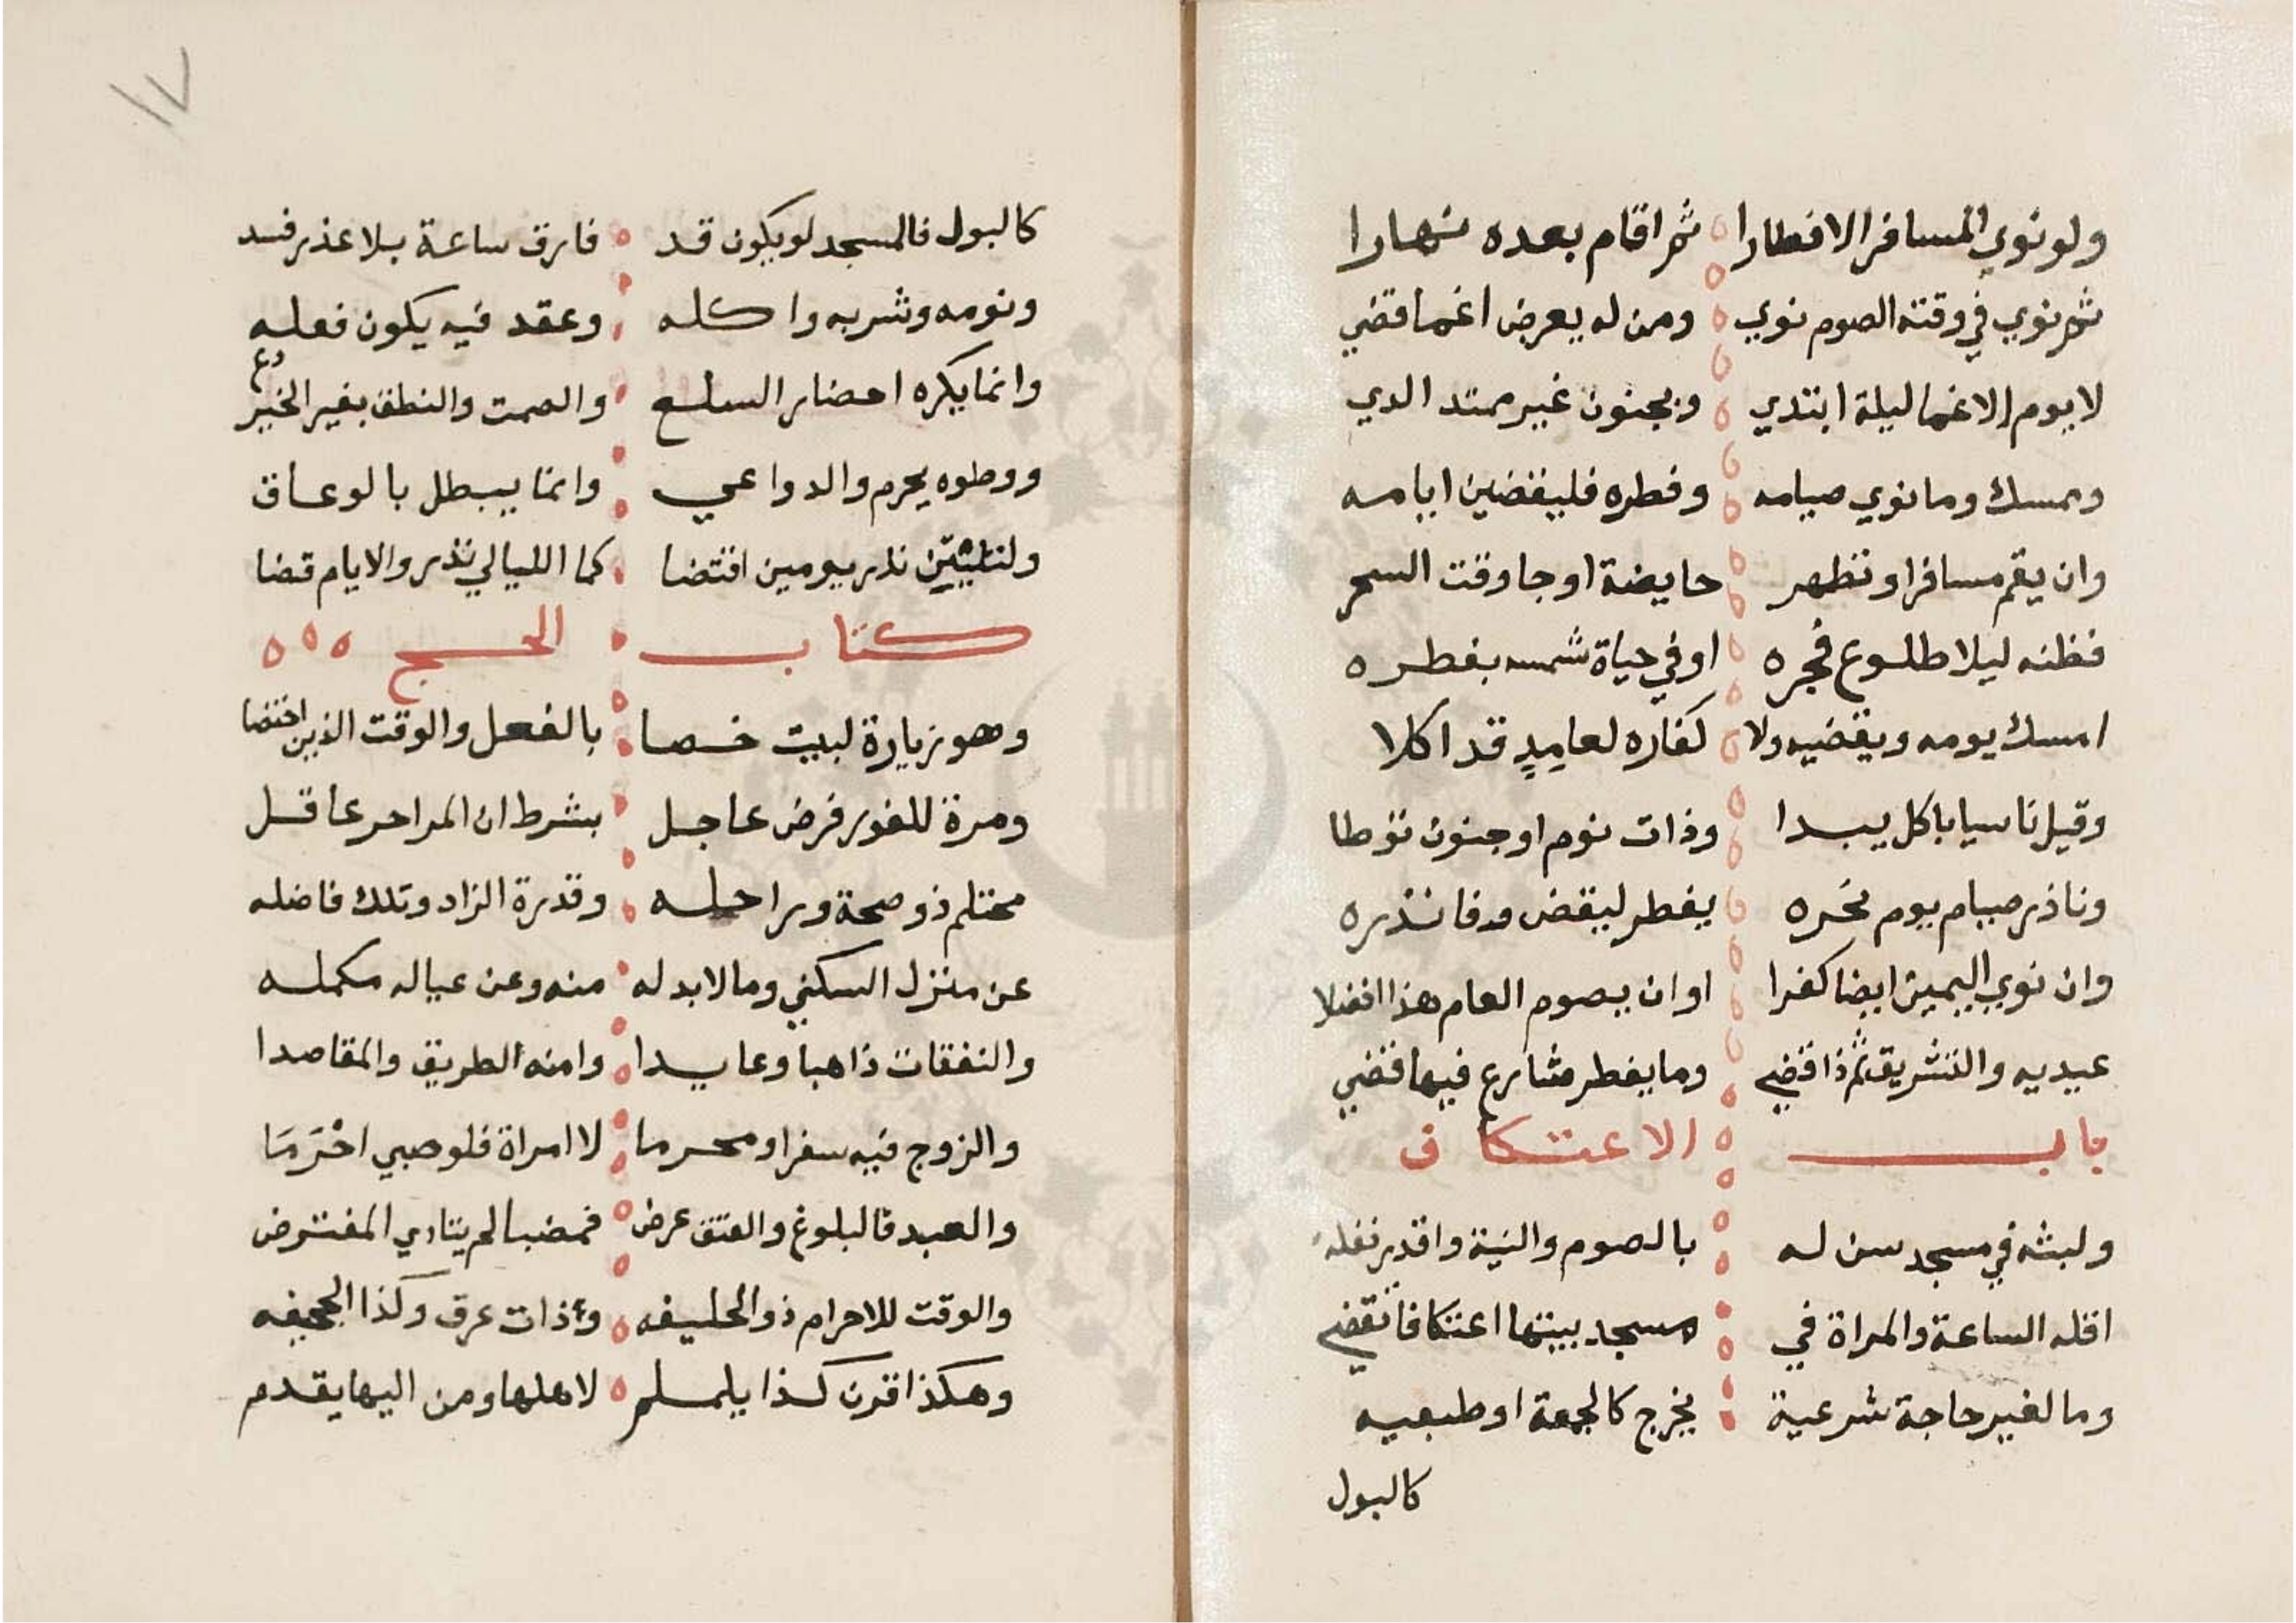 ولو نوي المسافر الافطارا ثم اقام بعده نهارا
ثم نوي في وقته الصوم نوي ومن له يعرض اغما قضي
لا يوم الاغما ليلة ابتدي وبجنون غير ممتد الدي
ومسك وما نوي صيامه وفطره فليقضين ايامه
وان يقم مسافرا وتطهر حايضة او جا وقت السحر
فظنه ليلا طلوع فجره او في حياة شمسه بفطره
امسك يومه ويقضيه ولا كفاره لعامد قد اكلا
وقيل ناسيا باكل يبدا وذات نوم او جنون توطا
وناذر صيام يوم نحره يفطر ليقض وفا نذره
وان نوي اليمين ايضا كفرا او ان يصوم العام هذا افضلا
عيديه والتشريق ثم ذا قضي وما يفطر شارع فيها قضي
باب الاعتكاف
ولبثه في مسجد سن له بالصوم والنية واقدر نفله
اقله الساعة والمراة في مسجد بيتها اعتكافا تقضي
وما لغير حاجة شرعية يخرج كالجمعة او طبعيه
كالبول
١٧
كالبول فالمسجد لو يكون قد فارق ساعة بلا عذر فسد
ونومه وشربه واكله وعقد فيه يكون فعله
وانما يكره احضار السلع والصمت والنطق بغير الخير دع
ووطوه يحرم والدواعي وانما يبطل بالوعاق
ولليلتين نذر يومين اقتضا كما الليالي نذر والايام قضا
كتاب الحج
وهو زيارة لبيت خصا بالفعل والوقت الذين اختصا
ومرة للفور فرض عاجل بشرط ان المرا حر عاقل
محتلم ذو صحة وراحله وقدرة الزاد وتلك فاضله
عن منزل السكني وما لا بد له منه وعن عياله مكمله
والنفقات ذاهبا وعايدا وامنه الطريق والمقاصدا
والزوج فيه سفرا ومحرما لا امراة فلو صبي احترما
والعبد فالبلوغ والعتق عرض فمضيا لم يتادي المفترض
والوقت للاحرام ذو الحليفه وذات عرق وكذا الجحيفه
وهكذا قرن كذا يلملم لاهلها ومن اليها يقدم